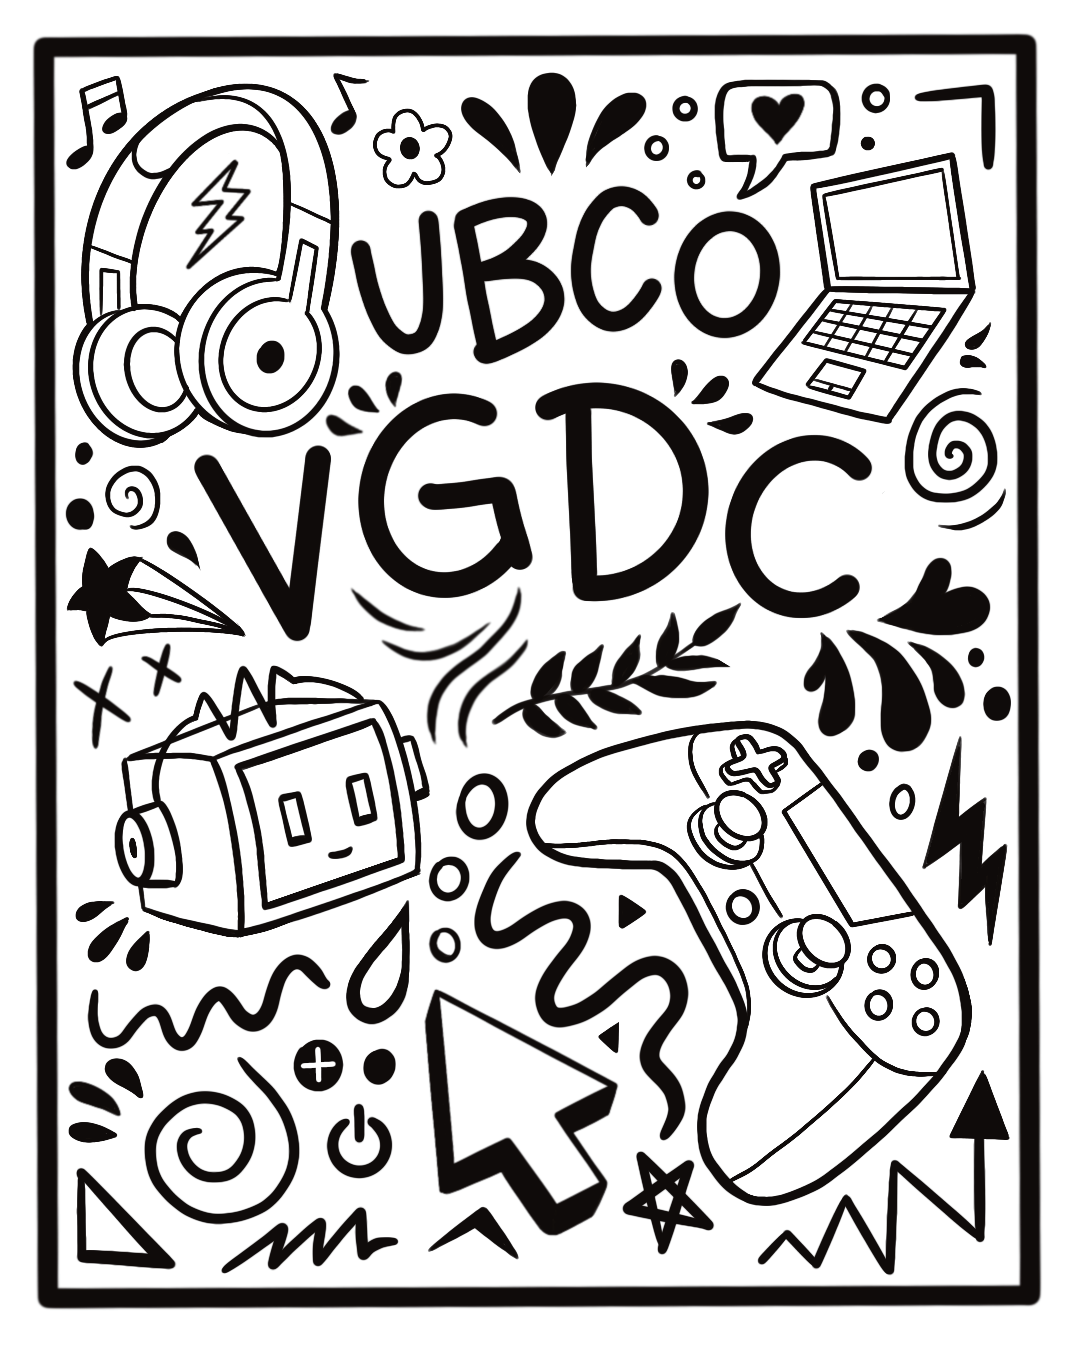 UBCO
VGDC